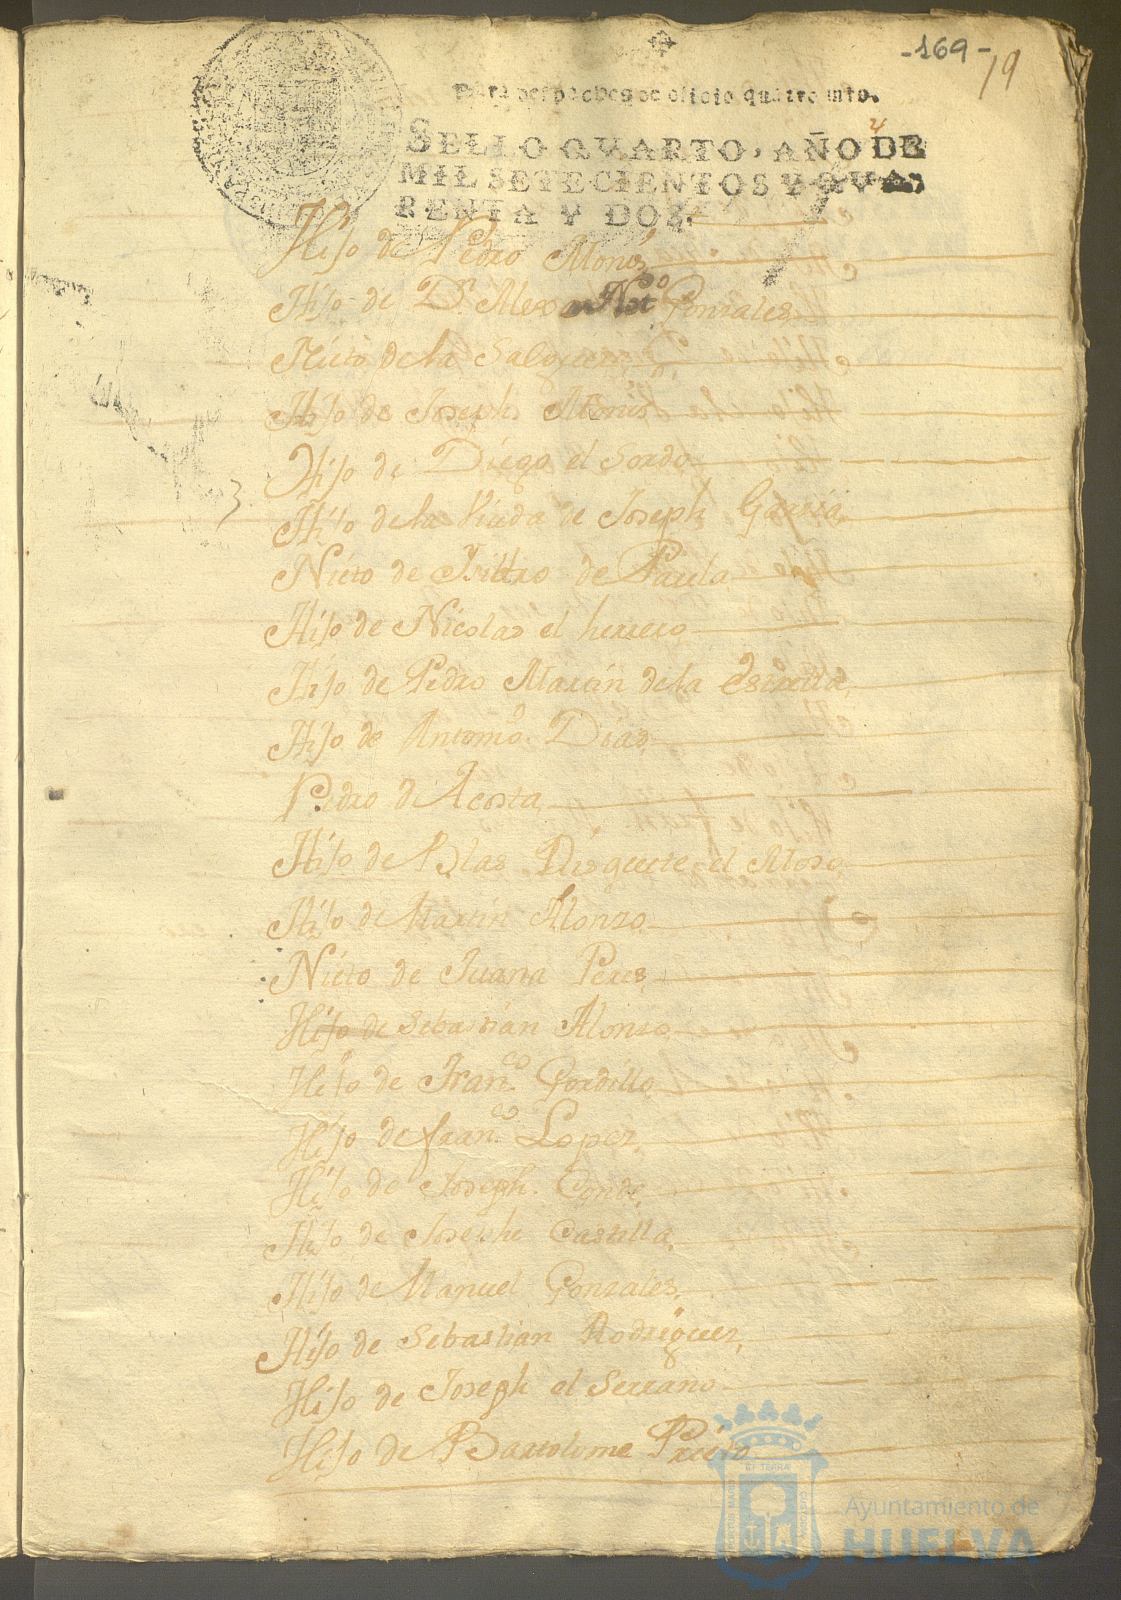 -169-
19
Para despachos de oficio quatro mrs.
SELLO QVARTO, AÑO DE
MIL SETECIENTOS Y QVA-
RENTA Y DOS.
Hijo de Pedro Alonso
Hijo de Dn. Gonzales
Nieto de la
Hijo de Joseph
Hijo de Diego el Sordo
Hijo de la Viuda de Joseph Garzia
Nieto de de Paula
Hijo de Nicolas el herrero
Hijo de Pedro Martin de la Estrella
Hijo de Antonio Dias
Pedro de Acosta
Hijo de Blas el Moso
Hijo de Martin Alonzo
Nieto de Juana Peres
Hijo de Sebastian Alonzo
Hijo de Franco. Gordillo
Hijo de franco. Lopez
Hijo de Joseph Conde
Hijo de Josephe Castilla
Hijo de Manuel Gonzales
Hijo de Sebastian Rodriguez
Hijo de Joseph el Serrano
Hijo de Bartolome Prieto
Ayuntamiento de
HUELVA